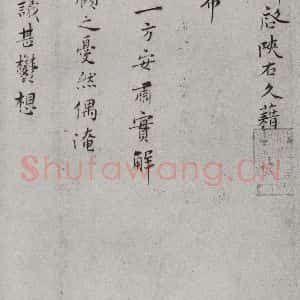 啓陝右久藉
布
一方安肅實解
顧之憂然偶淹
議甚鬱想
Shufawang.CN